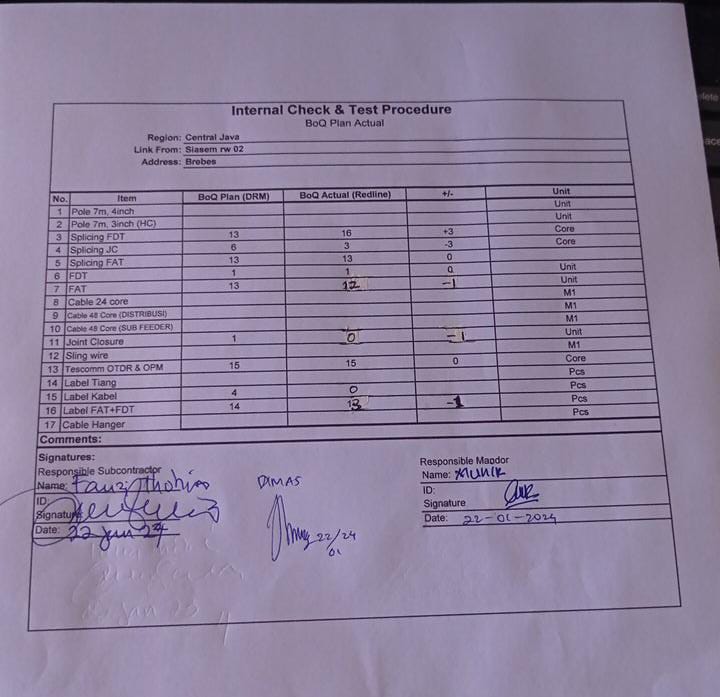 Internal Check & Test Procedure
BoQ Plan Actual
Region: Central Java
Link From: Siasem rw 02
Address: Brebes
No. Item BoQ Plan (DRM) BoQ Actual (Redline) +/- Unit
1 Pole 7m, 4inch Unit
2 Pole 7m, 3inch (HC) Unit
3 Splicing FDT 13 16 +3 Core
4 Splicing JC 6 3 -3 Core
5 Splicing FAT 13 13 0
6 FDT 1 1 0 Unit
7 FAT 13 12 -1 Unit
8 Cable 24 core M1
9 Cable 48 Core (DISTRIBUSI) M1
10 Cable 48 Core (SUB FEEDER) M1
11 Joint Closure 1 0 -1 Unit
12 Sling wire M1
13 Tescomm OTDR & OPM 15 15 0 Core
14 Label Tiang Pcs
15 Label Kabel 4 0 Pcs
16 Label FAT+FDT 14 13 -1 Pcs
17 Cable Hanger Pcs
Comments:
Signatures:
Responsible Subcontractor
Name:
ID:
Signature
Date: 22 Jun 24
DIMAS
22/24
01
Responsible Mandor
Name: MUNIR
ID:
Signature
Date: 22-01-2024